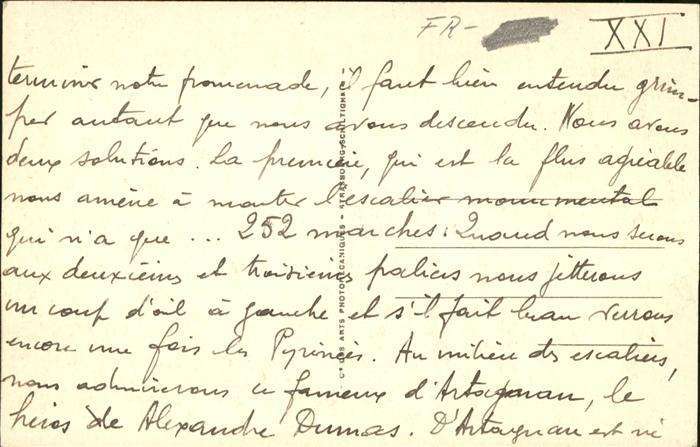 FR-
XXI
terminer notre promenade, il faut bien entendu grim-
per autant que nous avons descendu. Nous avons
deux solutions. La première, qui est la plus agréable
nous amène à monter l'escalier monumental
qui n'a que ... 252 marches. Quand nous serons
aux deuxièmes et troisièmes paliers nous jetterons
un coup d'œil à gauche et s'il fait beau verrons
encore une fois les Pyrénées. Au milieu des escaliers,
nous admirerons ce fameux d'Artagnan, le
héros de Alexandre Dumas. D'Artagnan est né
Cie DES ARTS PHOTOMÉCANIQUES - STRASBOURG-SCHILTIGHEIM -